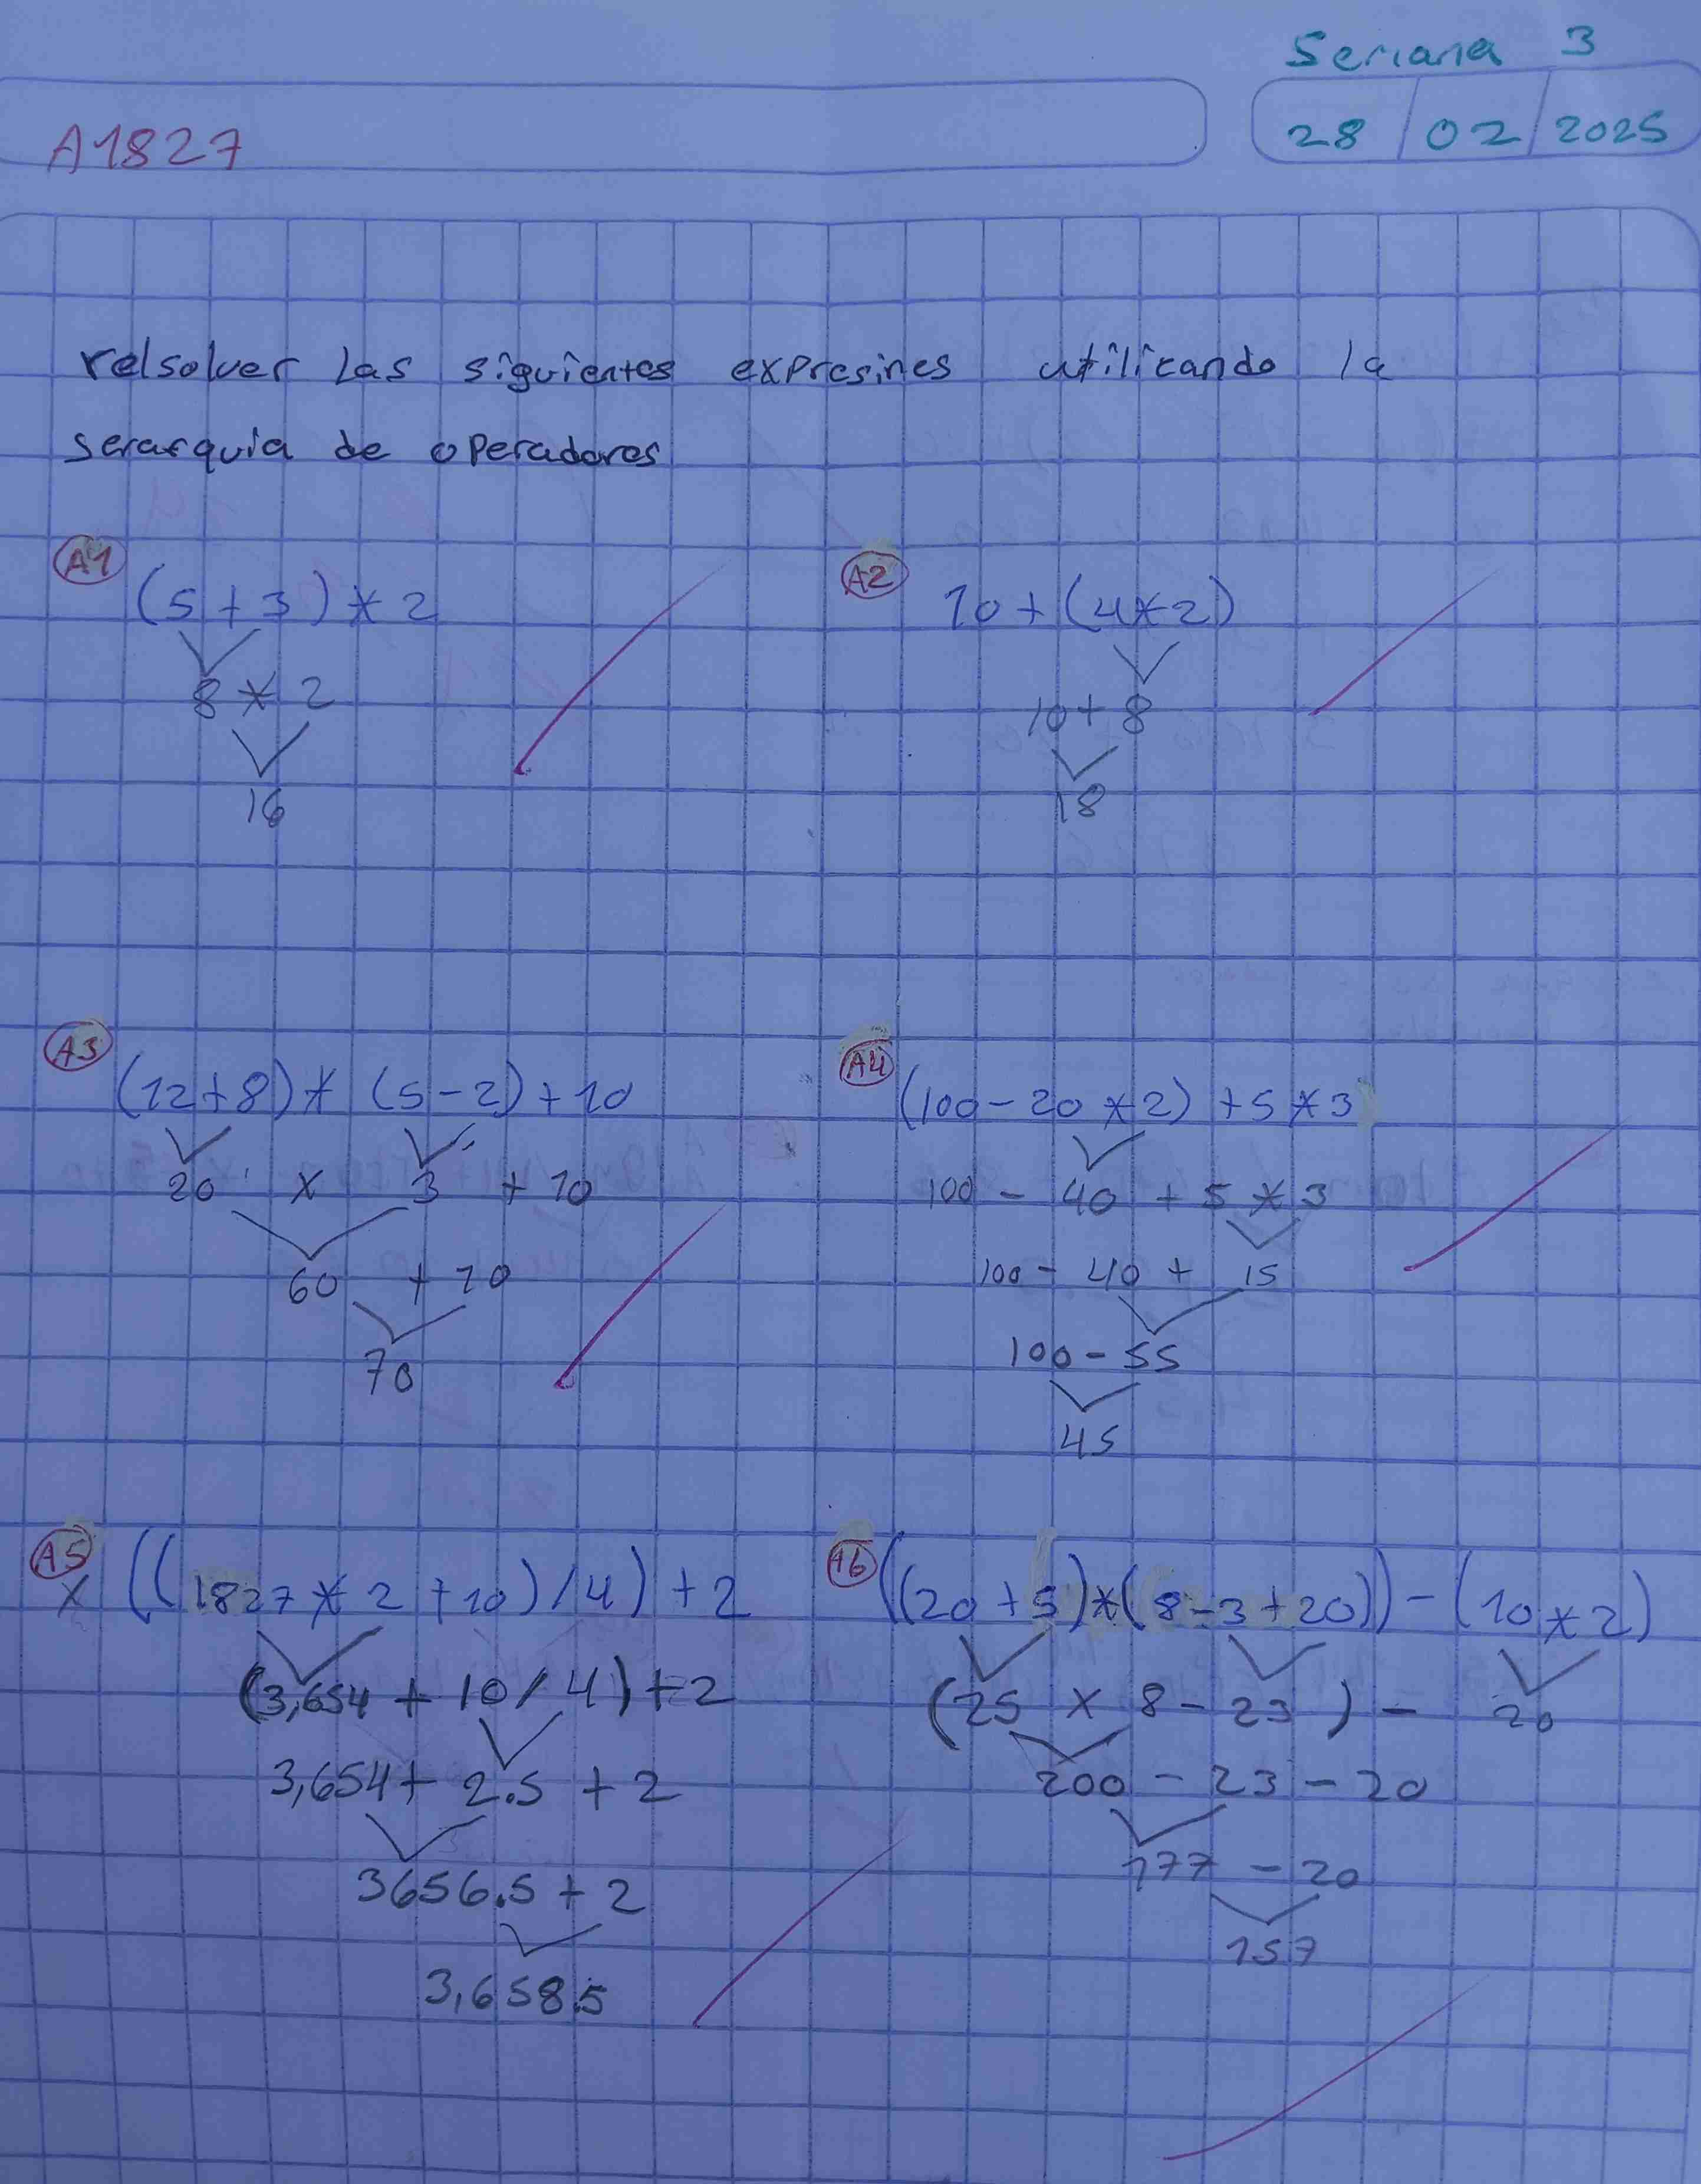 Semana 3
A1827
28/02/2025
relsolver las siguientes expresines utilizando la
serarquia de operadores
A1
(5+3)*2
8*2
16
A2
10+(4*2)
10+8
18
A3
(12+8)*(5-2)+10
20 x 3 +10
60 + 10
70
A4
(100-20*2)+5*3
100 - 40 + 5 * 3
100 - 40 + 15
100-55
45
A5
x ((1827*2+10)/4)+2
(3,654+10/4)+2
3,654+2.5+2
3656.5+2
3,658.5
A6
((20+5)*(8-3+20))-(10*2)
(25 x 8-23)-20
200-23-20
177-20
157